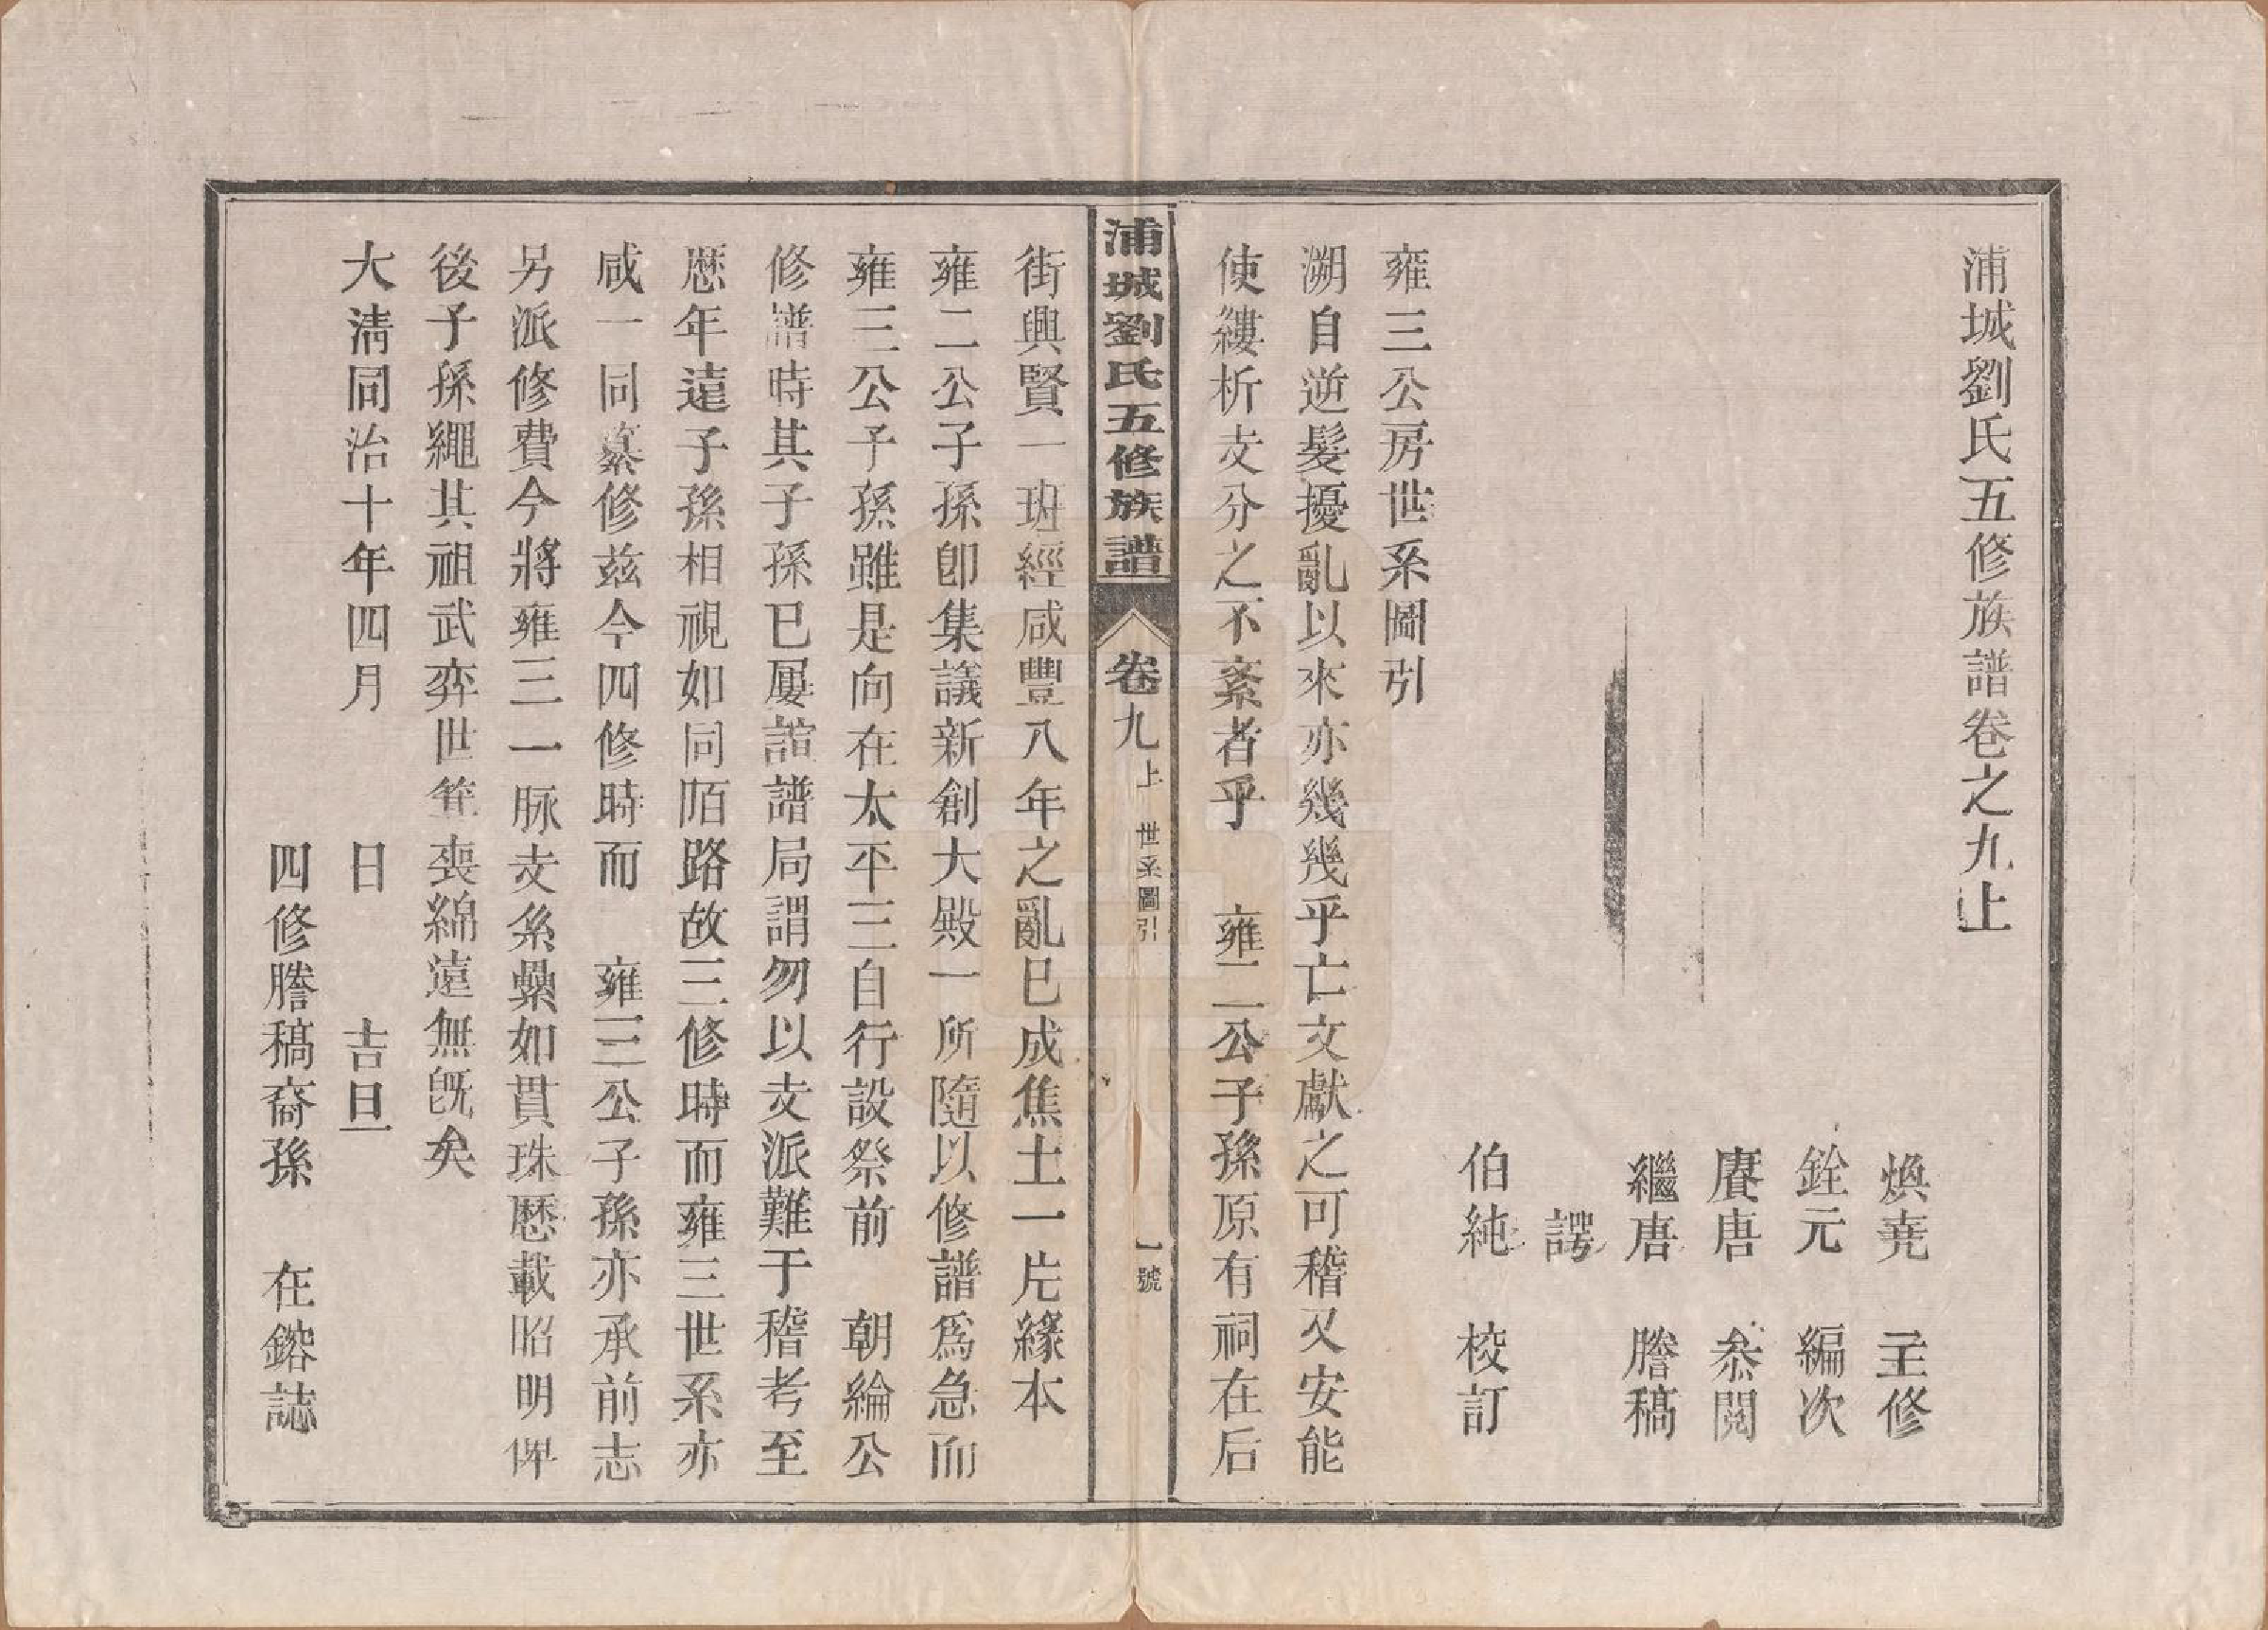 浦城劉氏五修族譜卷之九上
煥堯 主修
銓元 編次
賡唐 叅閱
繼唐 謄稿
諤
伯純 校訂
雍三公房世系圖引
溯自逆髮擾亂以來亦幾幾乎亡文獻之可稽又安能
使縷析支分之不紊者乎 雍二公子孫原有祠在后
浦城劉氏五修族譜 卷九上 世系圖引 一號
街興賢一班經咸豐八年之亂已成焦土一片緣本
雍二公子孫卽集議新創大殿一所隨以修譜爲急而
雍三公子孫雖是向在太平三自行設祭前 朝綸公
修譜時其子孫已屢詣譜局謂勿以支派難于稽考至
歷年遠子孫相視如同陌路故三修時而雍三世系亦
咸一同纂修茲今四修時而 雍三公子孫亦承前志
另派修費今將雍三一脉支系纍如貫珠歷載昭明俾
後子孫繩其祖武弈世箕裘綿遠無旣矣
大清同治十年四月 日 吉旦
四修謄稿裔孫 在鎔誌